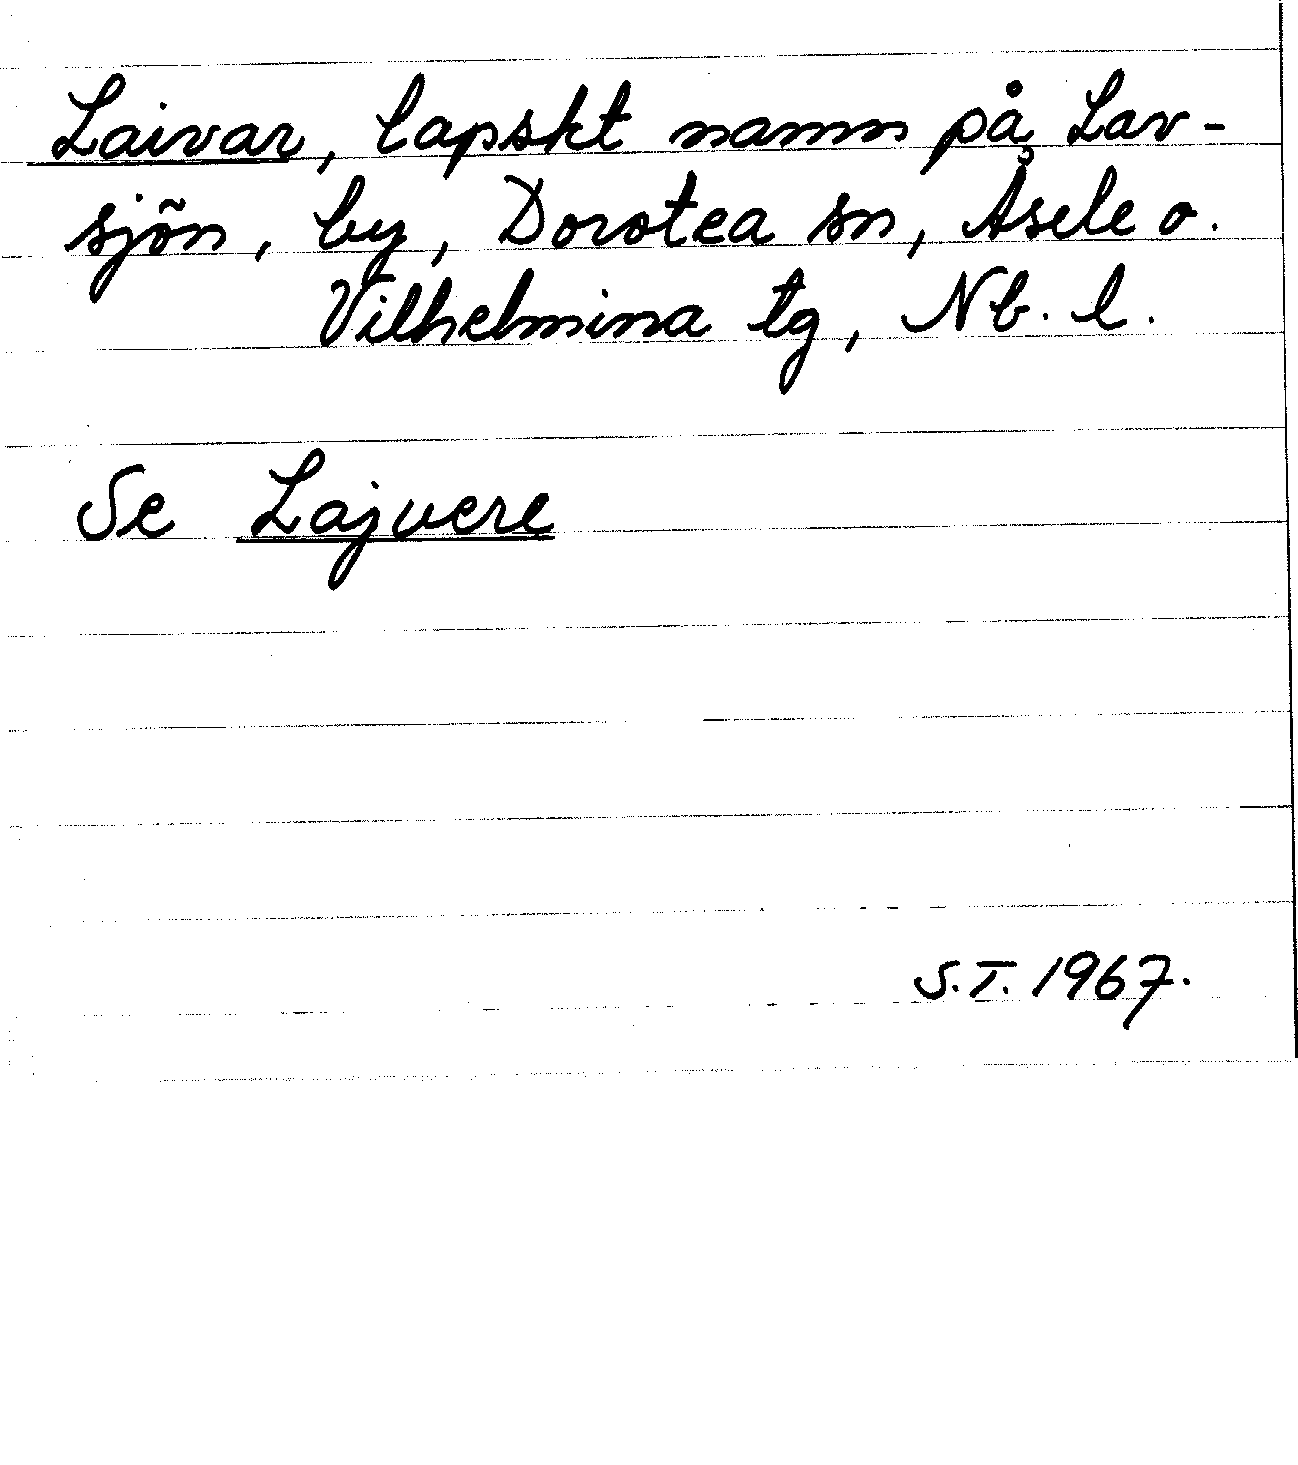 Laivar, lapskt namn på Lav-
sjön, by, Dorotea sn, Åsele o.
Vilhelmina tg, Nb. l.
Se Lajvere
S.T. 1967.